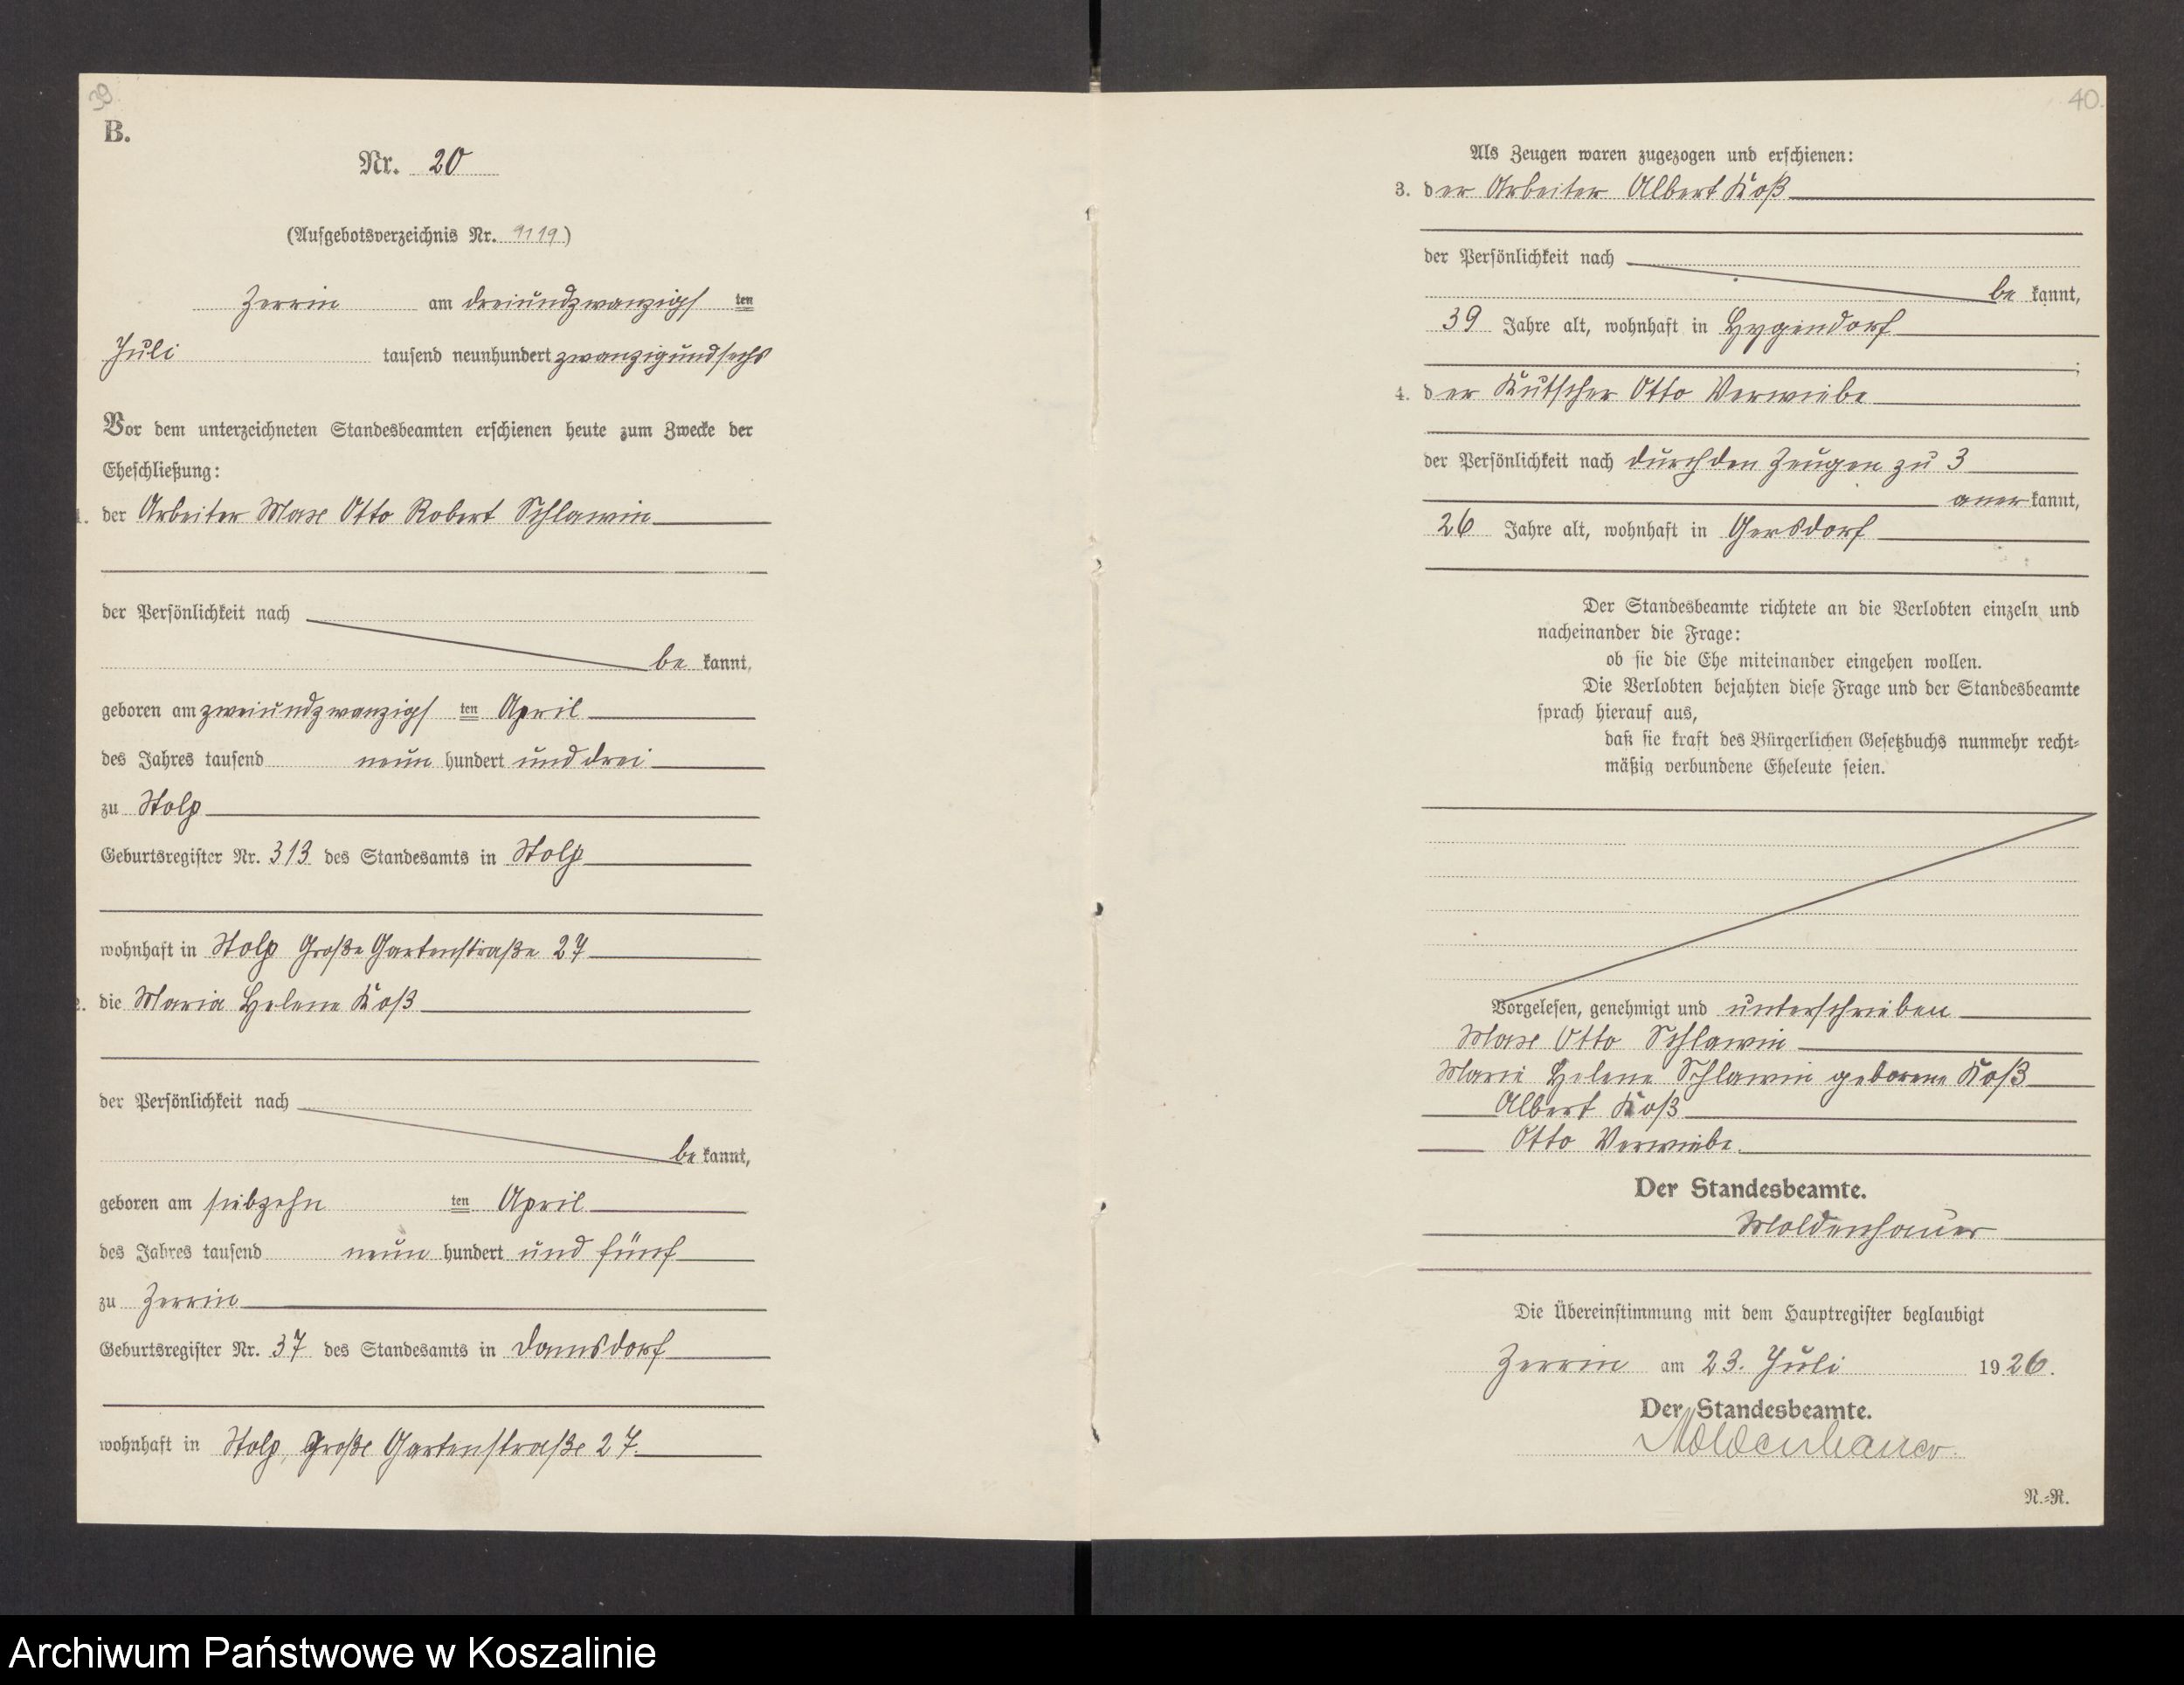 39
B.
Nr. 20
(Aufgebotsverzeichnis Nr. )
Zerrin am dreiundzwanzigsten
Juli tausend neunhundert zwanzigundsechs
Vor dem unterzeichneten Standesbeamten erschienen heute zum Zwecke der
Eheschließung:
1. der Arbeiter Max Otto Robert Schlawin
der Persönlichkeit nach
be kannt,
geboren am zweiundzwanzigsten April
des Jahres tausend neun hundert und drei
zu Stolp
Geburtsregister Nr. 313 des Standesamts in Stolp
wohnhaft in Stolp Große Gartenstraße 27
2. die Maria Helene Koß
der Persönlichkeit nach
be kannt,
geboren am siebzehn ten April
des Jahres tausend neun hundert und fünf
zu Zerrin
Geburtsregister Nr. 37 des Standesamts in Damsdorf
wohnhaft in Stolp, Große Gartenstraße 27.
40.
Als Zeugen waren zugezogen und erschienen:
3. der Arbeiter Albert Koß
der Persönlichkeit nach
be kannt,
39 Jahre alt, wohnhaft in Hygendorf
;
4. der Kutscher Otto Verwiebe
der Persönlichkeit nach durch den Zeugen zu 3
aner kannt,
26 Jahre alt, wohnhaft in Gersdorf
Der Standesbeamte richtete an die Verlobten einzeln und
nacheinander die Frage:
ob sie die Ehe miteinander eingehen wollen.
Die Verlobten bejahten diese Frage und der Standesbeamte
sprach hierauf aus,
daß sie kraft des Bürgerlichen Gesetzbuchs nunmehr recht-
mäßig verbundene Eheleute seien.
Vorgelesen, genehmigt und unterschrieben
Max Otto Schlawin
Marie Helene Schlawin geborene Koß
Albert Koß
Otto Verwiebe.
Der Standesbeamte.
Moldenhauer
Die Übereinstimmung mit dem Hauptregister beglaubigt
Zerrin am 23. Juli 1926.
Der Standesbeamte.
Moldenhauer.
N.-R.
Archiwum Państwowe w Koszalinie